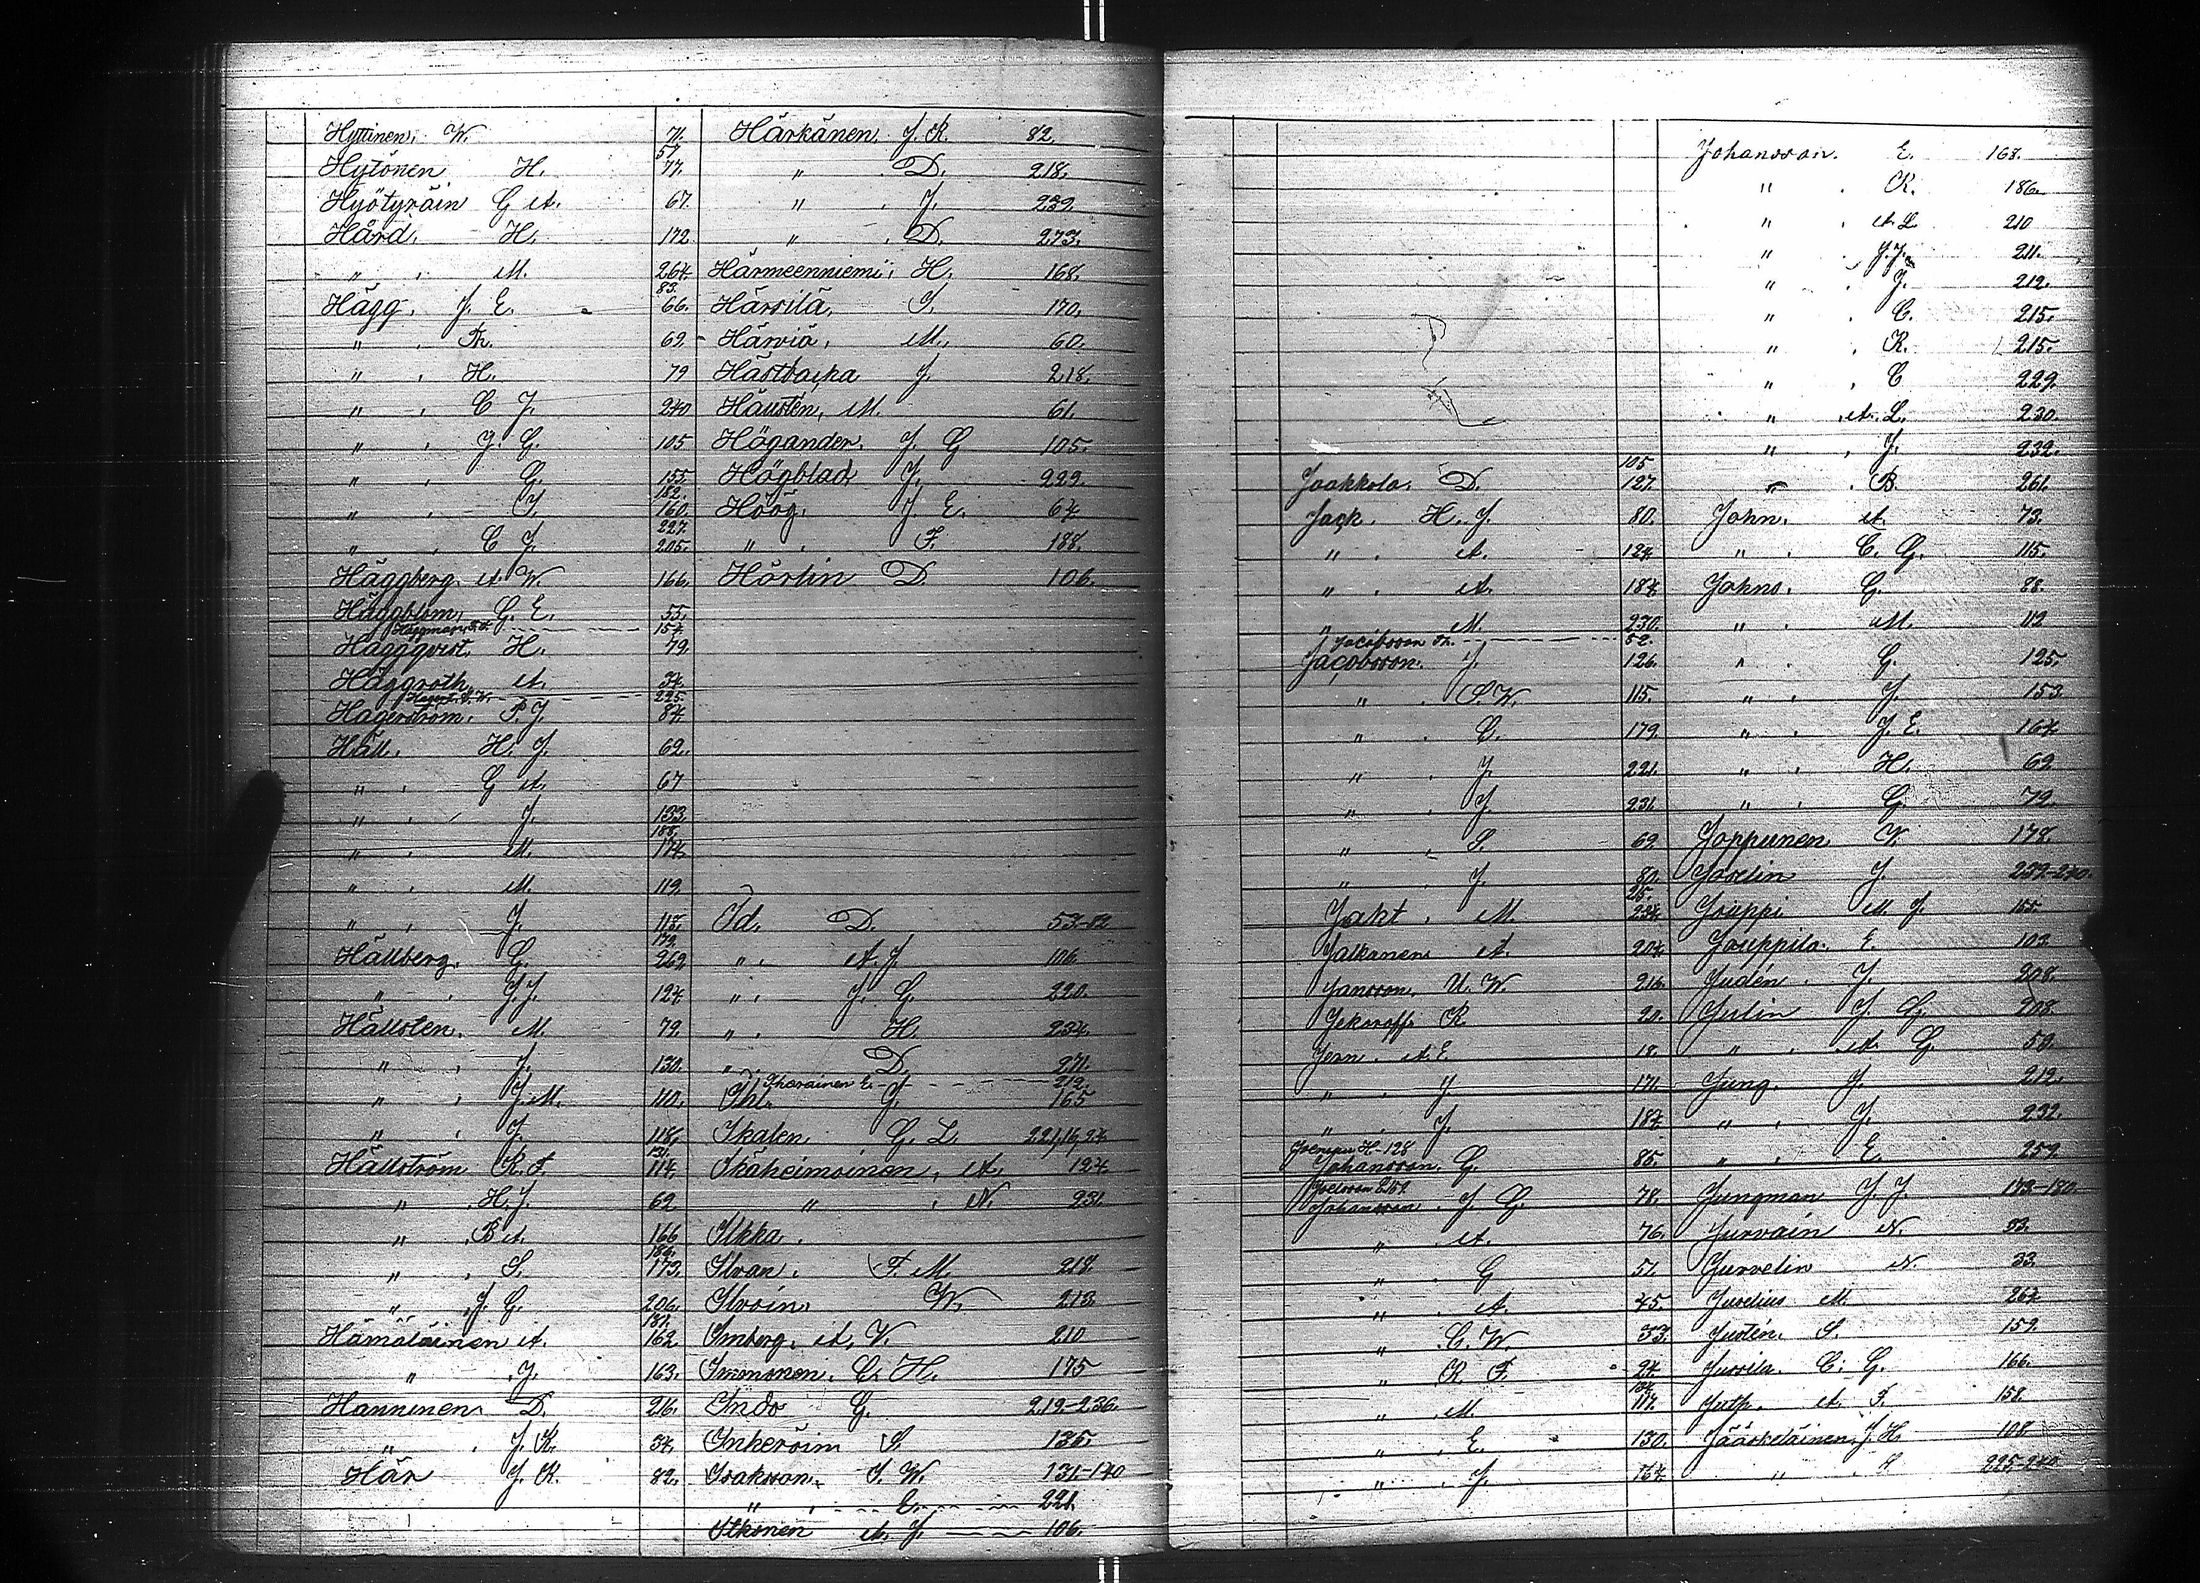 Hyttinen, W. 71.
57.
Hytönen H. 77.
Hyötyräin G A. 67.
Hård. H. 172
" . M. 264.
83.
Hägg. J. E. 66.
" . Th. 69.
" . H. 79
" . C J. 240
" . J. G. 105
" . G. 155.
182.
" . J. 160.
227.
" . C J. 205.
Häggberg. A W. 166.
Häggblom, G. E. 55.
Häggman, 154.
Häggqvist. H. 79.
Häggroth. A. 34.
225.
Hägerström. P. J. 84.
Häll. H. J. 62.
" . G A. 67
" . J. 133.
188.
" . M. 174.
" . M. 119.
" . J. 118.
179.
Hällberg. G. 262
" . J. J. 124.
Hällsten. M. 79.
" . J. 130.
" . J. M. 110.
" . J. 118.
131.
Hällström K. F. 114.
" . H. J. 62
" . B A. 166
186.
" . S. 173.
" . J. G. 206.
181.
Hämäläinen A. 162
" . J. 163.
Hänninen D. 216.
" . J. K. 34.
Här J. K. 82.
Härkänen. J. K. 82.
" . D. 218.
" . J. 239.
" . D. 273.
Härmeenniemi. H. 168.
Härsilä, S. 170.
Härviä, M. 60.
Hästbacka J. 218.
Hausten, M. 61.
Högander. J. G 105.
Högblad J. 229.
Höög. J. E. 64
" . F. 188.
Hörlin D 106.
Id. D. 53-82
" . A. J 106
" . J. G. 220.
" . H. 234.
" . D. 271.
Ihorainen E. 212.
Ihl. J. 165
Ikalen G. L. 221,16,24.
Ikäheimoinen, A. 194.
" . N. 231.
Ilkka.
Ilvan. F. M. 218.
Ilvoin, W. 213.
Imberg. A, V. 210
Immonen. C. H. 175
Indo G. 219-236.
Inheröin S. 135.
Isaksson. S. W. 131-140
" . E. 221.
Itkonen A. J. 106.
105.
Jaakkola. D. 127.
Jack. H. J. 80.
" . A. 124.
" . A. 184.
" M. 230.
Jacobsson Th. 52.
Jacobsson. J. 126.
" . S. W. 115.
" . C. 179.
" . J. 221.
" . J. 231.
" . S. 69.
" . J. 80.
25.
Jakt. M. 234.
Jalkanen A. 204.
Jansson. U. W. 216.
Jeknoff. K. 20.
Jern. A E. 18.
" . J. 171.
" . J. 184.
H-128
Johansson. G. 85.
Johansson. J. G. 78.
" . A. 76.
" . G 51.
" . A. 45.
" . C. W. 33.
" K F. 24.
184.
" . M. 117.
" . E. 130.
" . J. 164.
Johansson. E. 168.
" . K. 186.
" . A. L. 210
" . J. J. 211.
" . J. 212.
" . C. 215.
" . K. 215.
" . C 229.
" . A. L. 230.
" . J. 232.
" . B. 261.
John. A. 73.
" . C. G. 115.
Johns. G. 88.
" . M. 112
" . G. 125.
" . J. 153.
" . J. E. 164.
" . H. 62
" . G. 79.
Joppunen V. 178.
Joselin J. 239-240.
Jouppi M. J. 155.
Jouppila. E. 103.
Judén. J. 208.
Julin J. G. 208.
" . A. G. 59.
Jung. J. 212.
" . J. 232.
" . E. 259.
Jungman J. J. 173-180.
Jurvain N. 33.
Jurvelin N. 33.
Juselius M. 264
Justén. S. 159.
Jussila. C. G. 166.
Juth. A. F. 158.
Jääskeläinen, J. H. 108
" . S 225-240